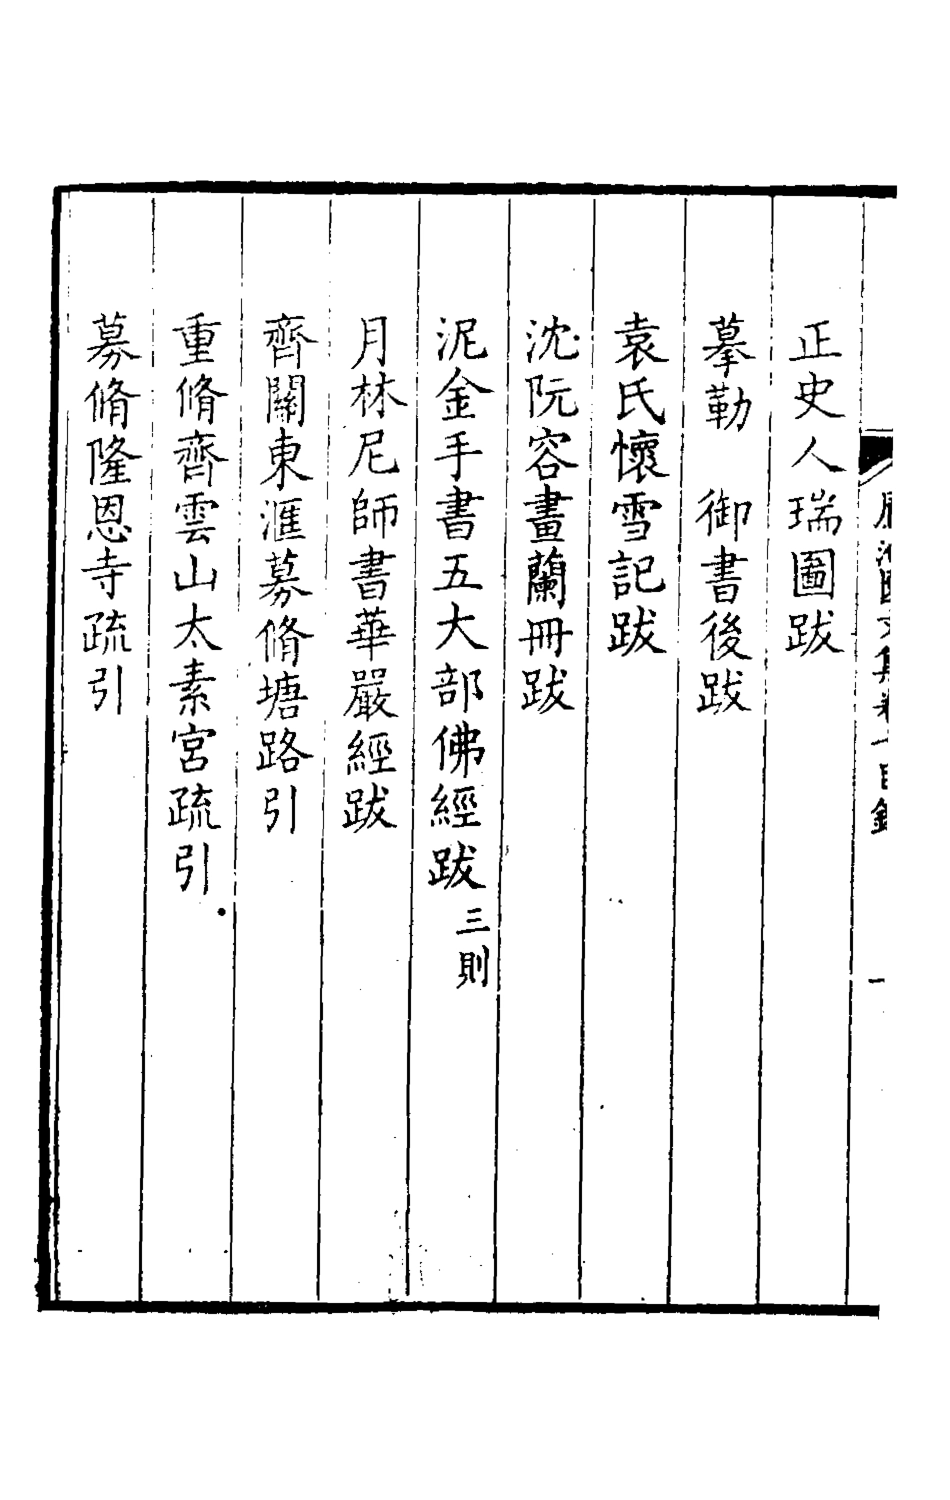 文集卷
目錄
一
正史人瑞圖跋
摹勒　御書後跋
袁氏懷雪記跋
沈阮容畫蘭冊跋
泥金手書五大部佛經跋三則
月林尼師書華嚴經跋
齊關東滙募脩塘路引
重脩齊雲山太素宮疏引
募脩隆恩寺疏引